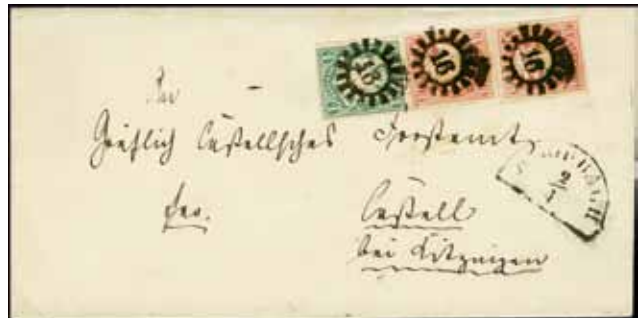 16 16 16
An
Gräflich Castellsches Forstamt
fro.
Castell
bei Kitzingen
2
1